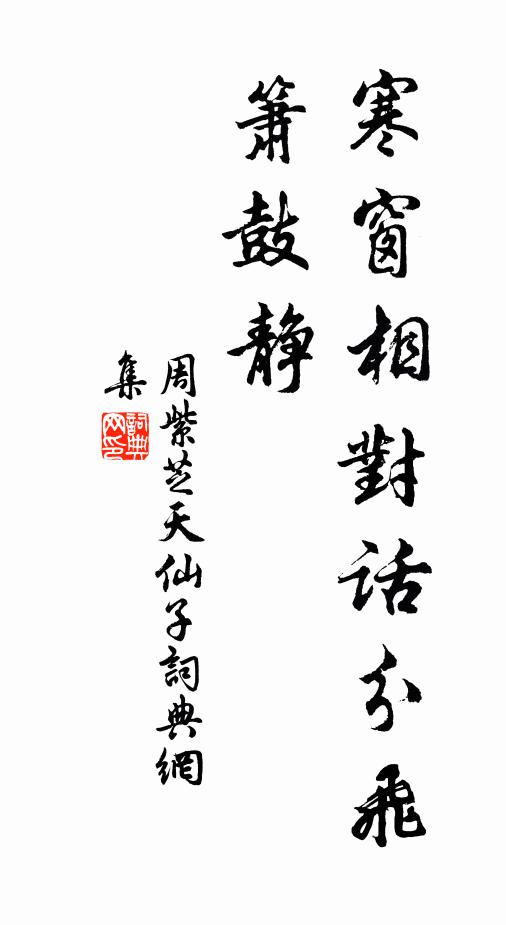 寒窗相對話分飛
簫鼓静
周紫芝天仙子詞典網
集
詞典
网印